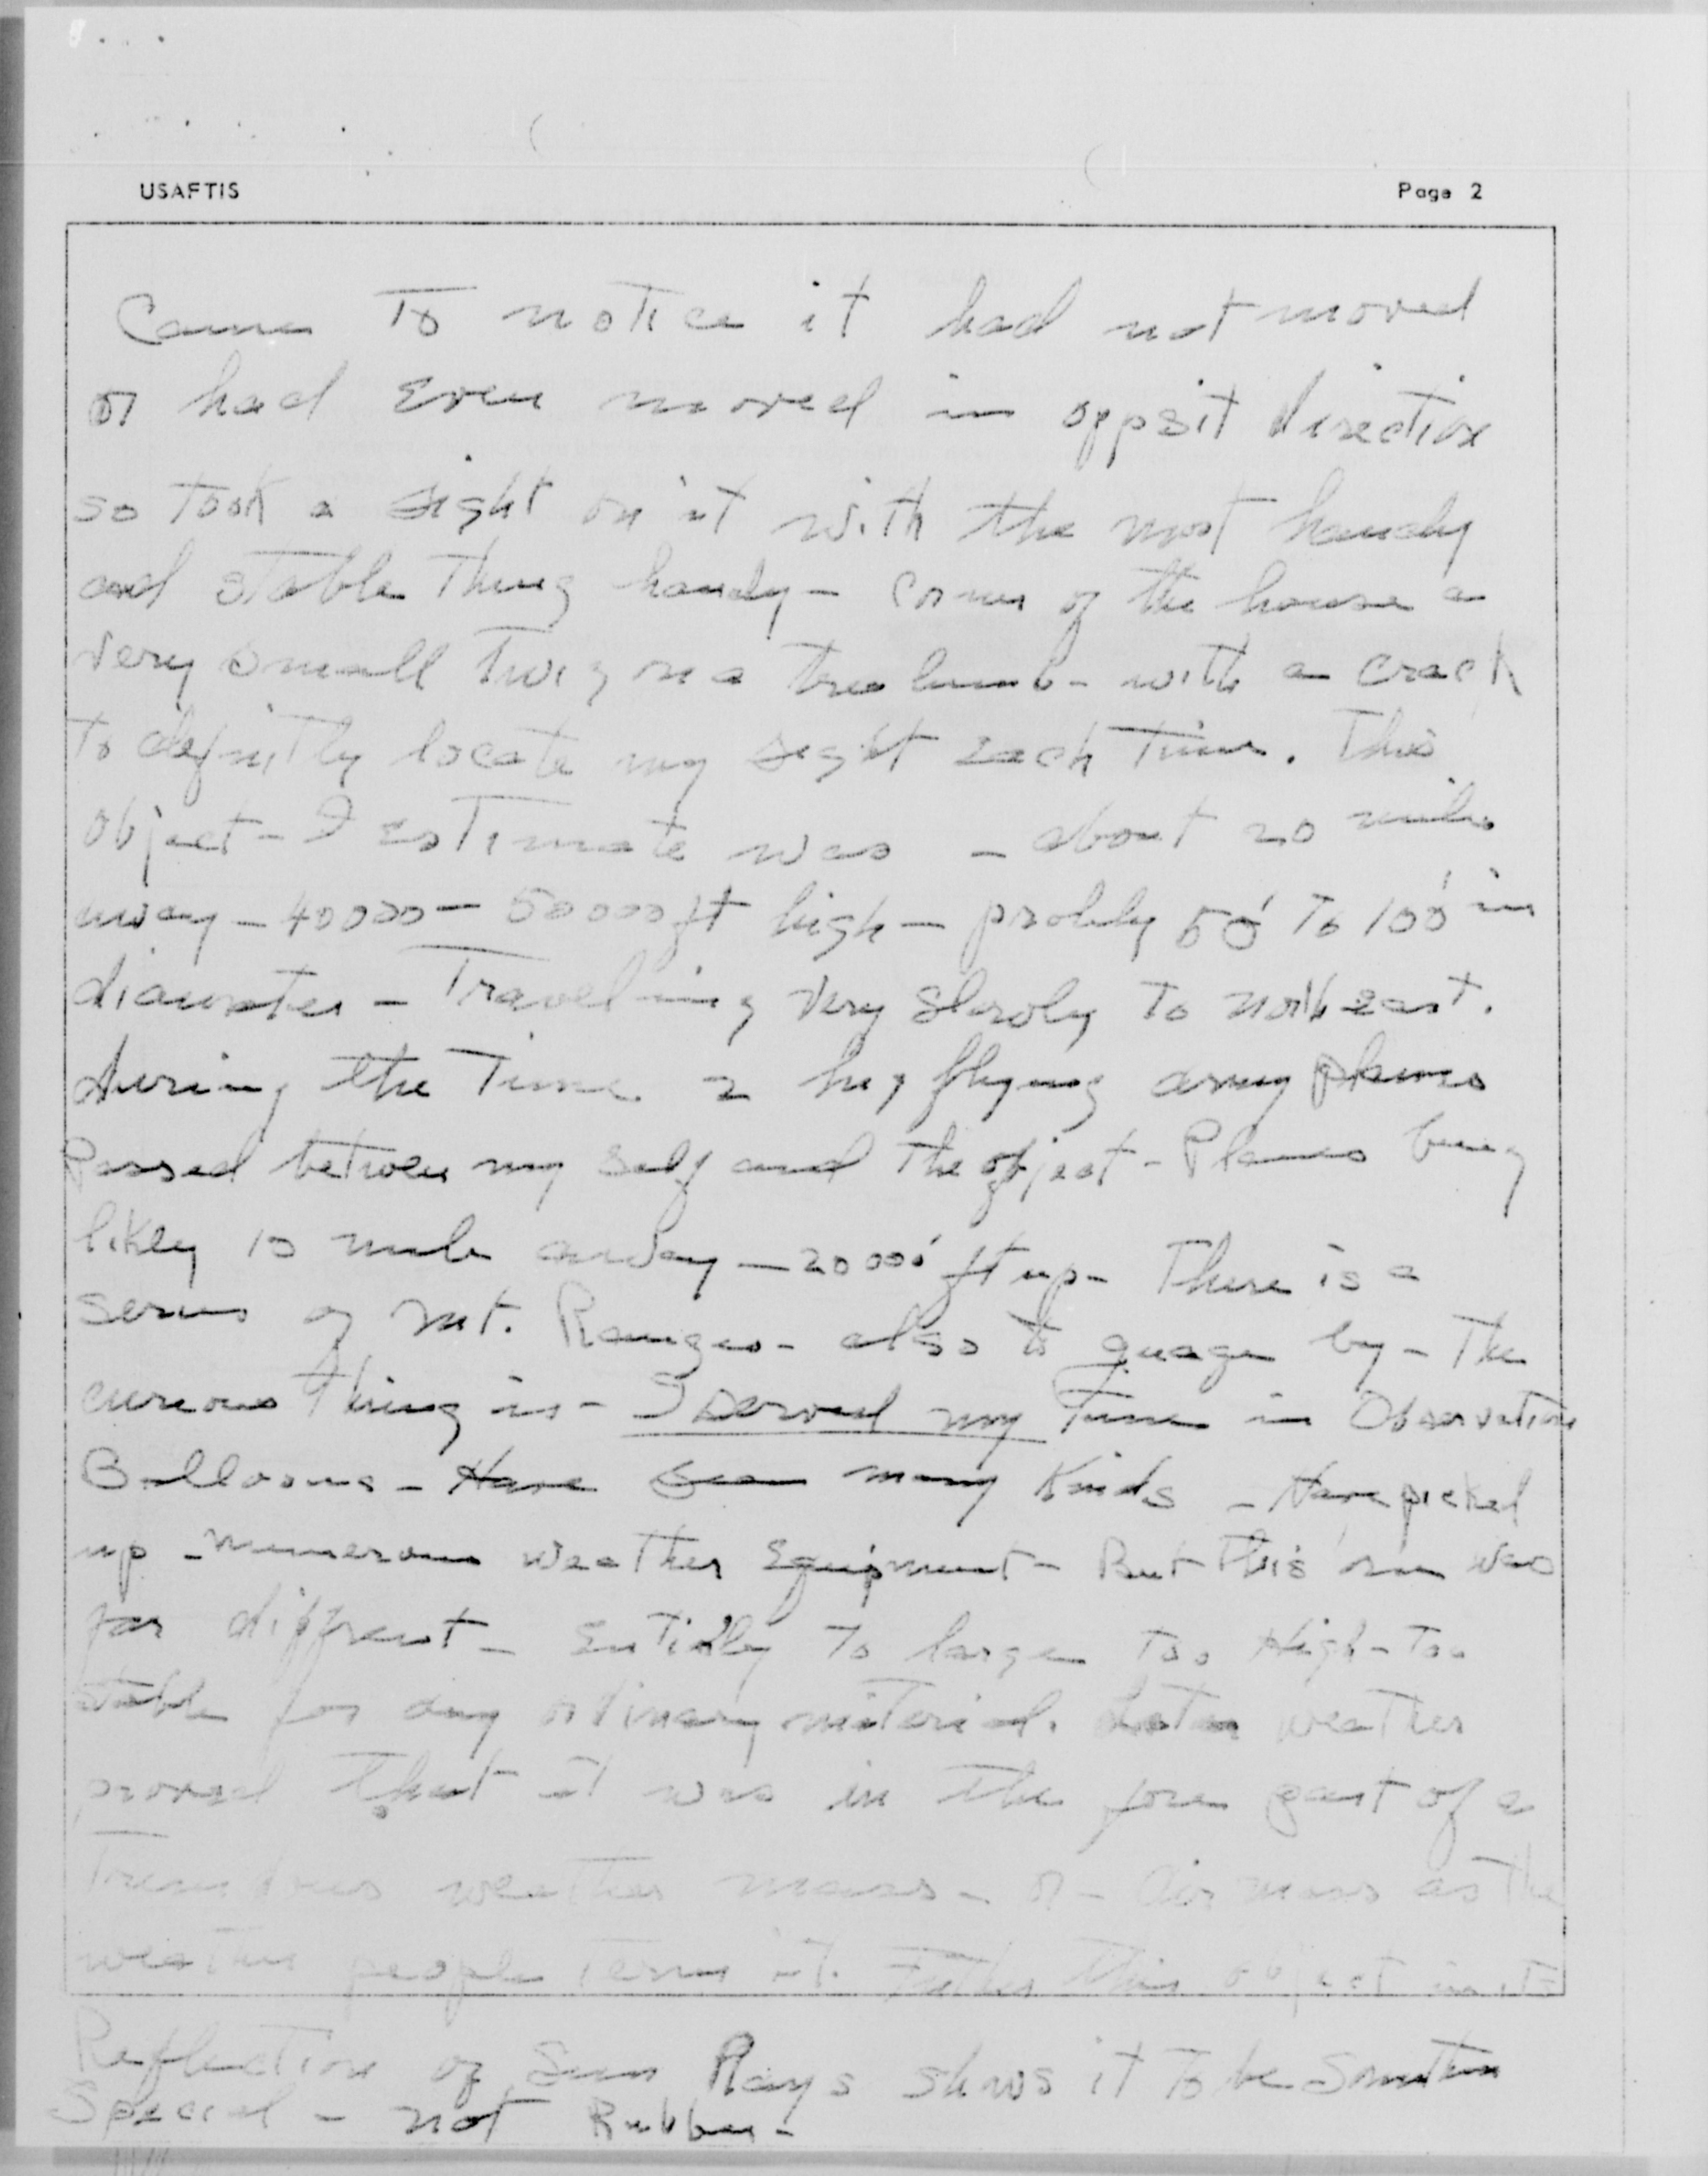 USAFTIS Page 2
Came To notice it had not moved
or had Even moved in oppsit direction
so Took a sight on it with the most handy
and stable Thing handy - Corner of the house a
very small Twig on a tree limb - with a crack
To definitly locate my sight each Time. This
object - I estimate was - about 20 miles
away - 40000 - 50000 ft high - probly 50' To 100' in
diameter - Traveling very slowly To north east.
during the Time 2 hig flying army planes
Passed between my self and The object - Planes being
likly 10 mile away - 20000' ft up - There is a
series of Mt. Ranges - also to guage by - The
curious Thing is - I served my Time in Observation
Balloons - Have seen many Kinds - Have picked
up - numerous weather Equipment - But this one was
far diffrent - Entirly To large Too High - Too
stable for any ordinary material. Later weather
proved that it was in the fore part of a
Tremdous weather mass - or - Air mass as The
weather people Term it. Futher This object in its
Reflection of Sun Rays shows it To be Somthin
Special - not Rubber -